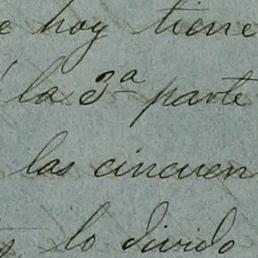 e hoy tiene
la 3ª parte
las cincuen
lo divido